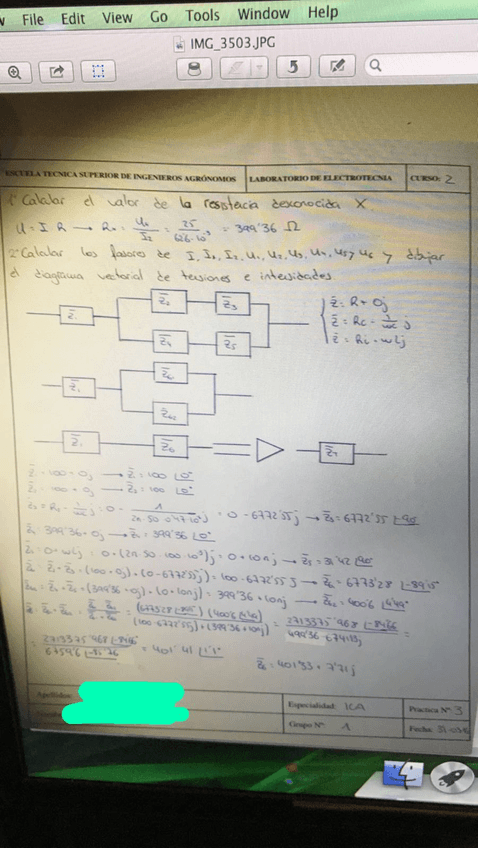 File Edit View Go Tools Window Help
IMG_3503.JPG
ESCUELA TECNICA SUPERIOR DE INGENIEROS AGRÓNOMOS LABORATORIO DE ELECTROTECNIA CURSO: 2
1º Calcular el valor de la resistencia desconocida X.
U = I R → Rx = U4 / I2 = 25 / 626·10⁻³ = 399'36 Ω
2º Calcular los fasores de I, I1, I2, U1, U2, U3, U4, U5 y U6 y dibujar
el diagrama vectorial de tensiones e intensidades.
Z̄1 Z̄2 Z̄3 Z̄4 Z̄5
Z̄ = R + 0j
Z̄ = Rc - 1/wc j
Z̄ = Rl - wLj
Z̄1
Z̄1 Z̄b Z̄T
Z̄1 = 100 + 0j → Z̄ = 100 |0°
= 100 + 0j → Z̄2 = 100 |0°
= 0 - 1 / 2π·50·0'47·10 j = 0 - 6772'55j → Z̄3 = 6772'55 |-90
399'36 + 0j → Z̄ = 399'36 |0°
Z̄5 = 0 + wLj = 0 + (2π·50·100·10⁻³)j = 0 + 10πj → Z̄5 = 31'42 |90
= (100 + 0j) + (0 - 6772'55j) = 100 - 6772'55j → = 6773'28 |-89'15
= (399'36 + 0j) + (0 + 10πj) = 399'36 + 10πj → = 400'6 |4'49°
(100 - 6772'55j) + (399'36 + 10πj) = 2713375'968 |-84'66 / 499'36 - 6741'13j =
= 2713375'968 |-84'66 / 6759'6 |-85'76 = 401'41 |1'1°
Z̄b = 401'33 + 7'71j
Apellidos:
Especialidad: ICA
Práctica Nº: 3
Grupo Nº: 1
Fecha: